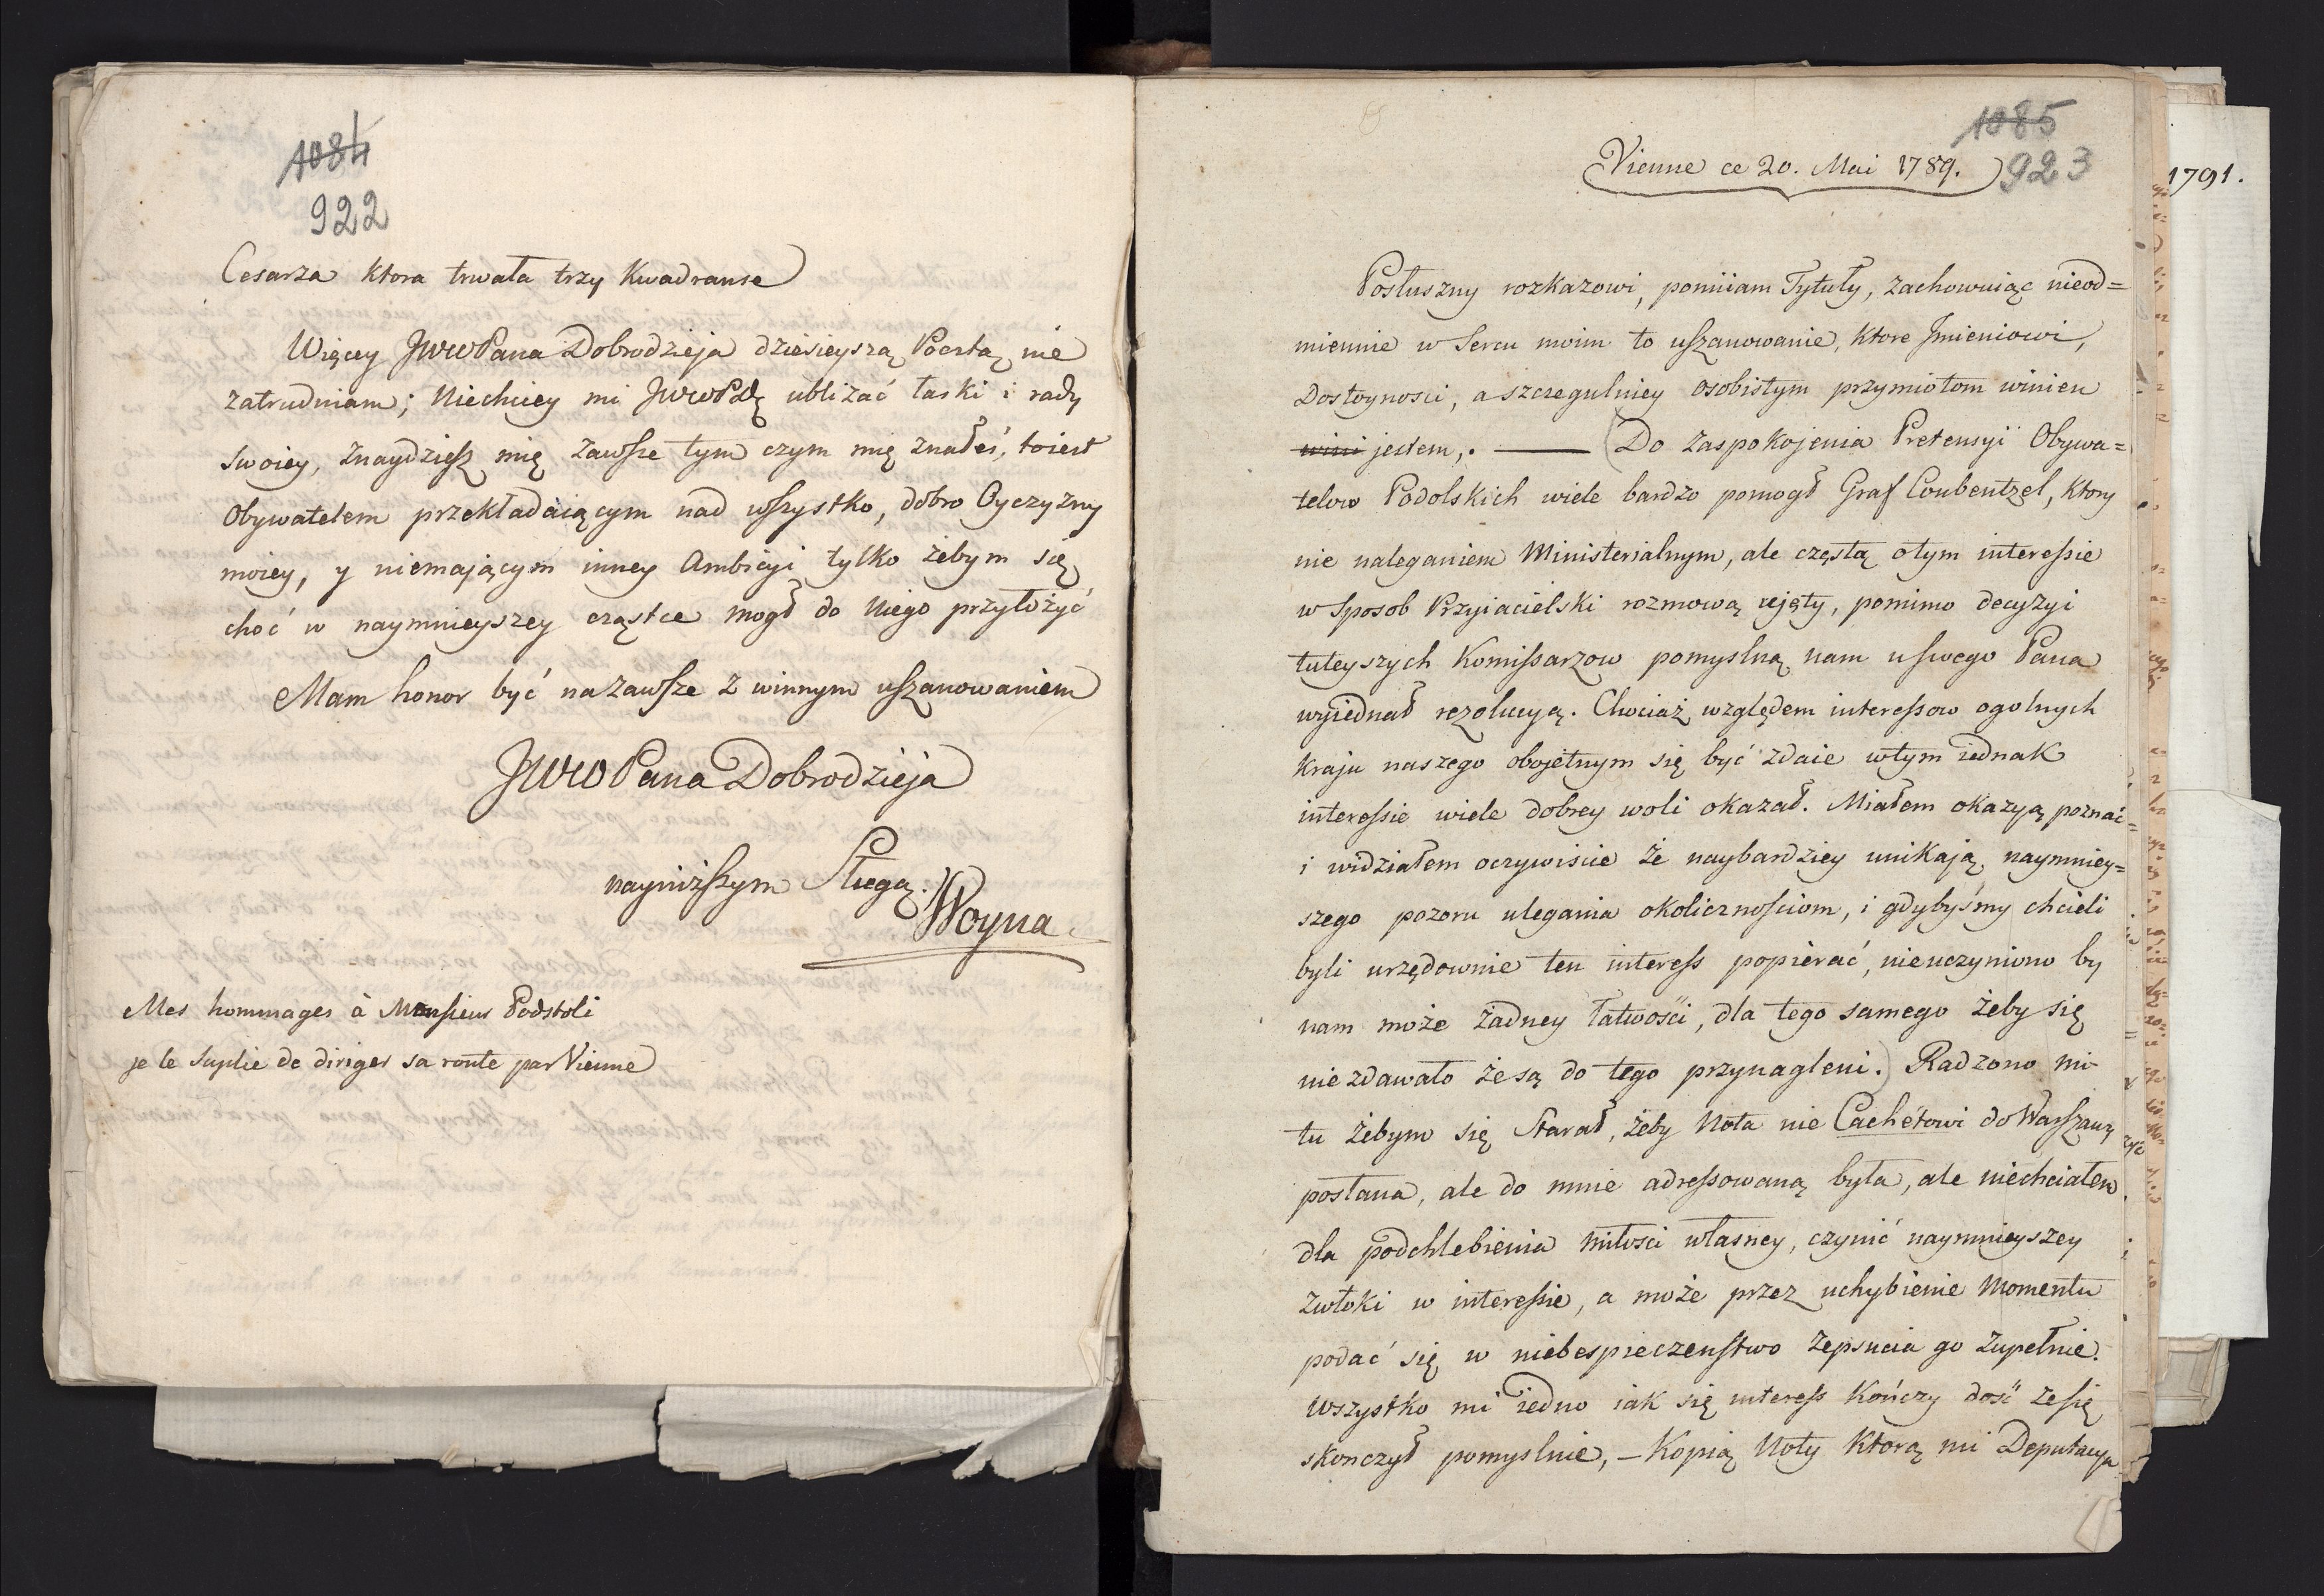 1084
922
Cesarza ktora trwała trzy Kwadranse
Więcey JWWPana Dobrodzieja dziesieyszą Pocztą nie
zatrudniam; Niechciey mi JWWPD ubliżać łaski i rady
swoiey, znaydziesz mię zawsze tym czym mię znałeś, toiest
Obywatelem przekładaiącym nad wszystko, dobro Oyczyzny
moiey, y niemającym inney Ambicyi tylko żebym się
choć w naymnieyszey cząstce mogł do Niego przyłożyć
Mam honor być nazawsze z winnym uszanowaniem
JWWPana Dobrodzieja
nayniższym Sługą.
Woyna
Mes hommages à Monsieur Podstoli
je le suplie de diriger sa route par Vienne
1085
923
Vienne ce 20. Mai 1789.
1791.
Posłuszny rozkazowi, pomiiam Tytuły, zachowuiąc nieod=
miennie w Sercu moim to uszanowanie, ktore Jmieniowi,
Dostoynosci, a szczegulniey osobistym przymiotom winien
wini jestem,. — (Do zaspokojenia Pretensyi Obywa=
telow Podolskich wiele bardzo pomogł Graf Coubentzel, ktory
nie naleganiem Ministerialnym, ale częstą otym interessie
w Sposob Przyiacielski rozmową ujęty, pomimo decyzyi
tuteyszych Komissarzow pomyslną nam u swego Pana
wyiednał rezolucyą. Chociaż względem interessow ogolnych
Kraju naszego obojętnym się być zdaie wtym iednak
interessie wiele dobrey woli okazał. Miałem okazyą poznać
i widziałem oczywiscie że naybardziey unikają naymniey=
szego pozoru ulegania okolicznosciom, i gdybyśmy chcieli
byli urzędownie ten interess popierać, nieuczyniono by
nam może żadney łatwości, dla tego samego żeby się
nie zdawało że są do tego przynagleni.) Radzono mi
tu żebym się Starał, żeby Nota nie Cachétowi do Warszawy
posłana, ale do mnie adressowaną była, ale niechciałem
dla podchlebienia miłosci własney, czynić naymnieyszey
zwłoki w interessie, a może przez uchybienie Momentu
podać się w niebespieczenstwo zepsucia go zupełnie.
Wszystko mi iedno iak się interess kończy dość ze się
skonczył pomyslnie, – Kopią Noty Ktorą mi Deputacya